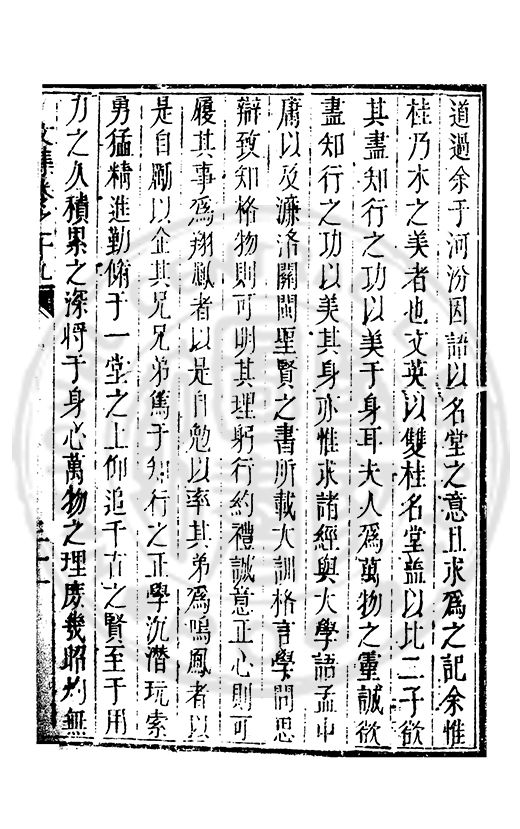 道過余于河汾因語以名堂之意且求爲之記余惟
桂乃木之美者也文英以雙桂名堂蓋以比二子欲
其盡知行之功以美于身耳夫人爲萬物之靈誠欲
盡知行之功以美其身亦惟求諸經與大學語孟中
庸以及濂洛關閩聖賢之書所載大訓格言學問思
辯致知格物則可明其理躬行約禮誠意正心則可
履其事爲翔鳳者以是自勉以率其弟爲鳴鳳者以
是自勵以企其兄兄弟篤于知行之正學沉潛玩索
勇猛精進勤脩于一堂之上仰追千古之賢至于用
力之久積累之深將于身心萬物之理庶幾昭灼無
文集卷之十九